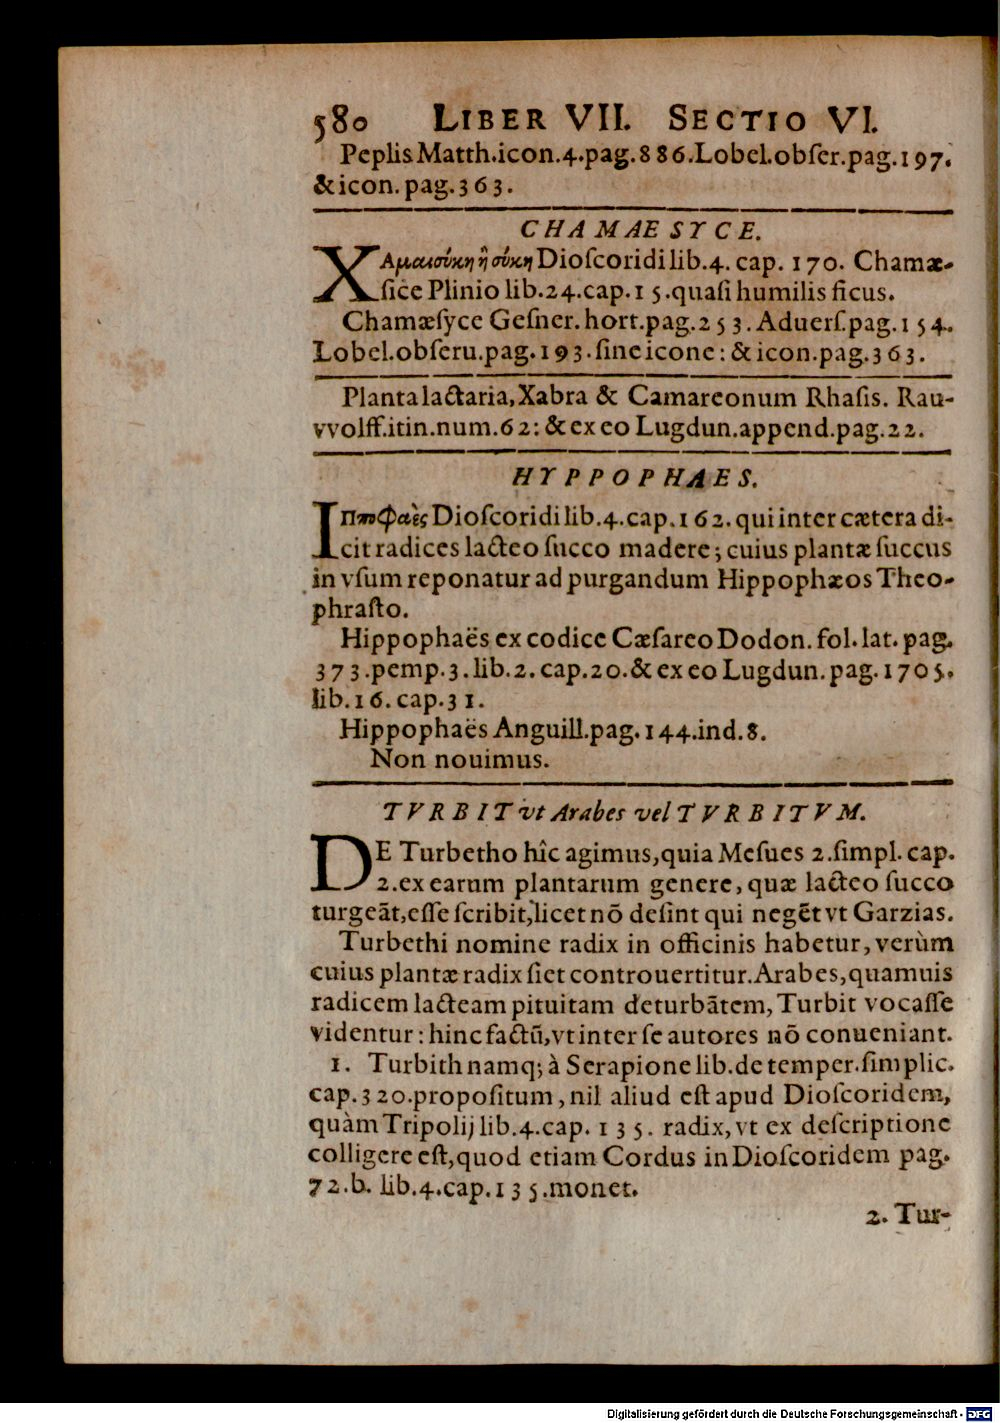 580 LIBER VII. SECTIO VI.
Peplis Matth.icon.4.pag.886.Lobel.obſer.pag.197.
& icon. pag.363.
CHAMAESYCE.
ΧΑμαισύκη ἢ σύκη Dioſcoridi lib.4. cap. 170. Chamæ-
ſice Plinio lib.24.cap.15.quaſi humilis ficus.
Chamæſyce Geſner. hort.pag.253. Aduerſ.pag.154.
Lobel.obſeru.pag.193.ſine icone: & icon.pag.363.
Planta lactaria, Xabra & Camareonum Rhaſis. Rau-
vvolff.itin.num.62: & ex eo Lugdun.append.pag.22.
HYPPOPHAES.
ΙΠποφαὲς Dioſcoridi lib.4.cap.162. qui inter cætera di-
cit radices lacteo ſucco madere; cuius plantæ ſuccus
in vſum reponatur ad purgandum Hippophæos Theo-
phraſto.
Hippophaës ex codice Cæſareo Dodon. fol. lat. pag.
373.pemp.3.lib.2. cap.20.& ex eo Lugdun. pag.1705.
lib.16. cap.31.
Hippophaës Anguill.pag.144.ind.8.
Non nouimus.
TVRBIT vt Arabes vel TVRBITVM.
DE Turbetho hîc agimus, quia Meſues 2.ſimpl. cap.
2.ex earum plantarum genere, quæ lacteo ſucco
turgeãt, eſſe ſcribit, licet nõ deſint qui negẽt vt Garzias.
Turbethi nomine radix in officinis habetur, verùm
cuius plantæ radix ſiet controuertitur. Arabes, quamuis
radicem lacteam pituitam deturbãtem, Turbit vocaſſe
videntur: hinc factũ, vt inter ſe autores nõ conueniant.
1. Turbith namq; à Serapione lib.de temper.ſimplic.
cap.320.propoſitum, nil aliud eſt apud Dioſcoridem,
quàm Tripolij lib.4.cap. 135. radix, vt ex deſcriptione
colligere eſt, quod etiam Cordus in Dioſcoridem pag.
72.b. lib.4.cap.135.monet.
2. Tur-
Digitalisierung gefördert durch die Deutsche Forschungsgemeinschaft - DFG